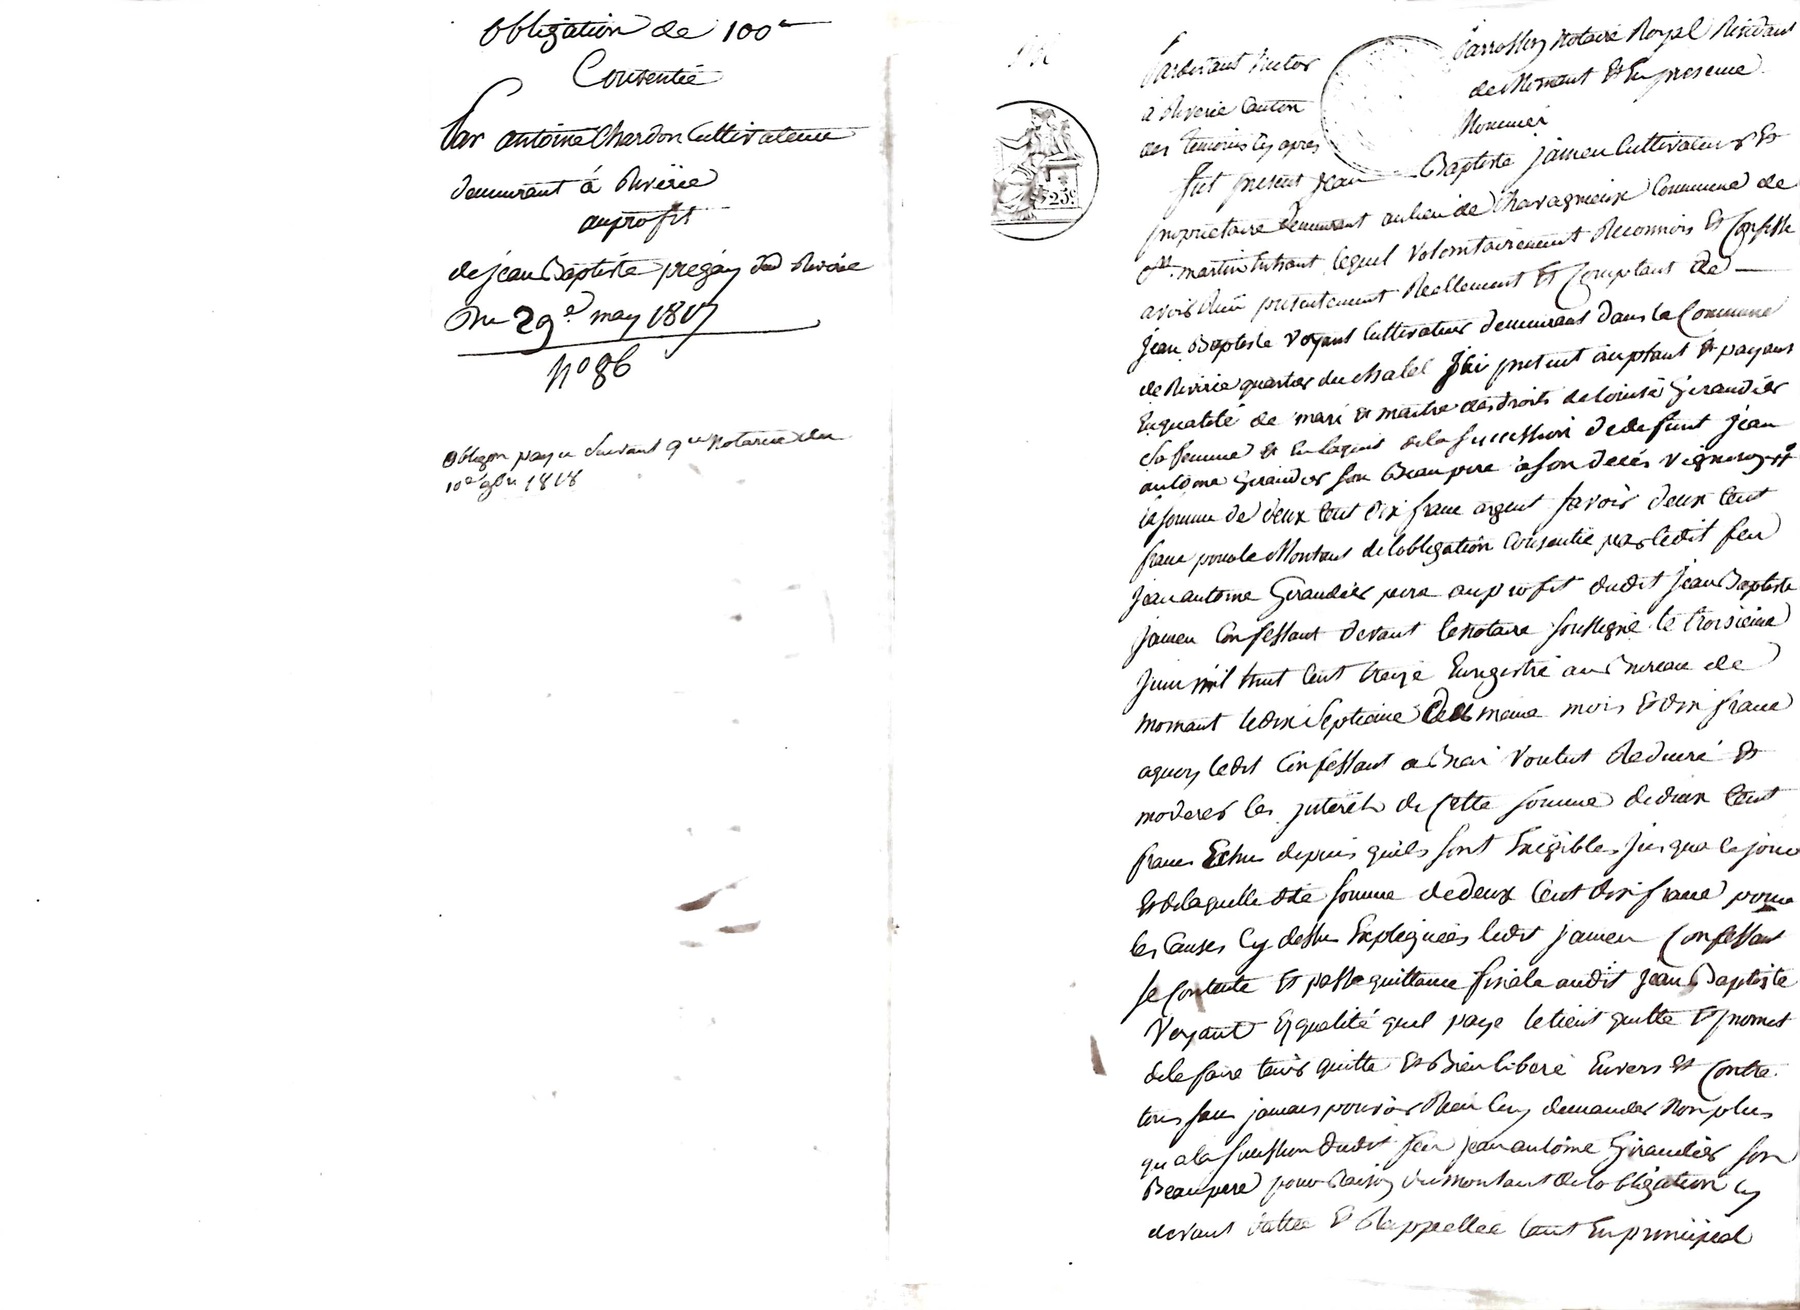 obligation de 100#
Consentie
Par antoine Chardon Cultivateur
demeurant á Riverie
au profit
de jean Baptiste pregay dud Riverie
Du 29e may 1817
No 86
obligon payee suivant qce Notariée du
10e 9bre 1818
25c
Pardevant Victor Parrossoy Notaire Royal Residant
à Riverie Canton de Mornant Et En presence
des temoins Cy apres Nommés
fut present Jean Baptiste jameu Cultivateur Et
proprietaire demeurant au lieu de Chavagnieux Commune de
St martin lequel Volontairement Reconnois Et Confesse
avoir Reçu presentement Reellement Et Comptant de
jean Baptiste Voyant Cultivateur demeurant dans la Commune
de Riverie quartier du Chatel Jci present acceptant Et payant
En qualité de mari Et maitre des droits de Giraudier
sa femme Et En l'aquit de la succession de defunt jean
antoine Giraudier son Beau pere a son decés
la somme de deux Cent dix franc argent savoir deux Cent
franc pour le Montant de l'obligation Consentie par ledit feu
jean antoine Giraudier pere au profit dudit jean Baptiste
jameu Confessant devant le Notaire soussigné le troisieme
juin mil huit Cent treize Enregistré au Bureau de
mornant le dix septieme du meme mois Et dix franc
aquoy ledit Confessant a Bien Voulut Reduire Et
moderer les jnterêts de Cette somme de deux Cent
francs Echus depuis quils sont Exigibles jusqua ce jour
Et de laquelle dite somme de deux Cent dix franc pour
les Causes Cy dessus Expliquées ledit jameu Confessant
se Contente Et passe quittance finale audit jean Baptiste
Voyant Eyqualité quil paye le tient quitte Et promet
de le faire tenir quitte Et Bien liberé Envers Et Contre
tous sans jamais pouvoir Rien luy demander Non plus
qu a la succession dudit feu jean antoine Giraudier son
Beau pere pour Raison du montant de l'obligation Cy
devant dattée Et Rappellée tant En principal